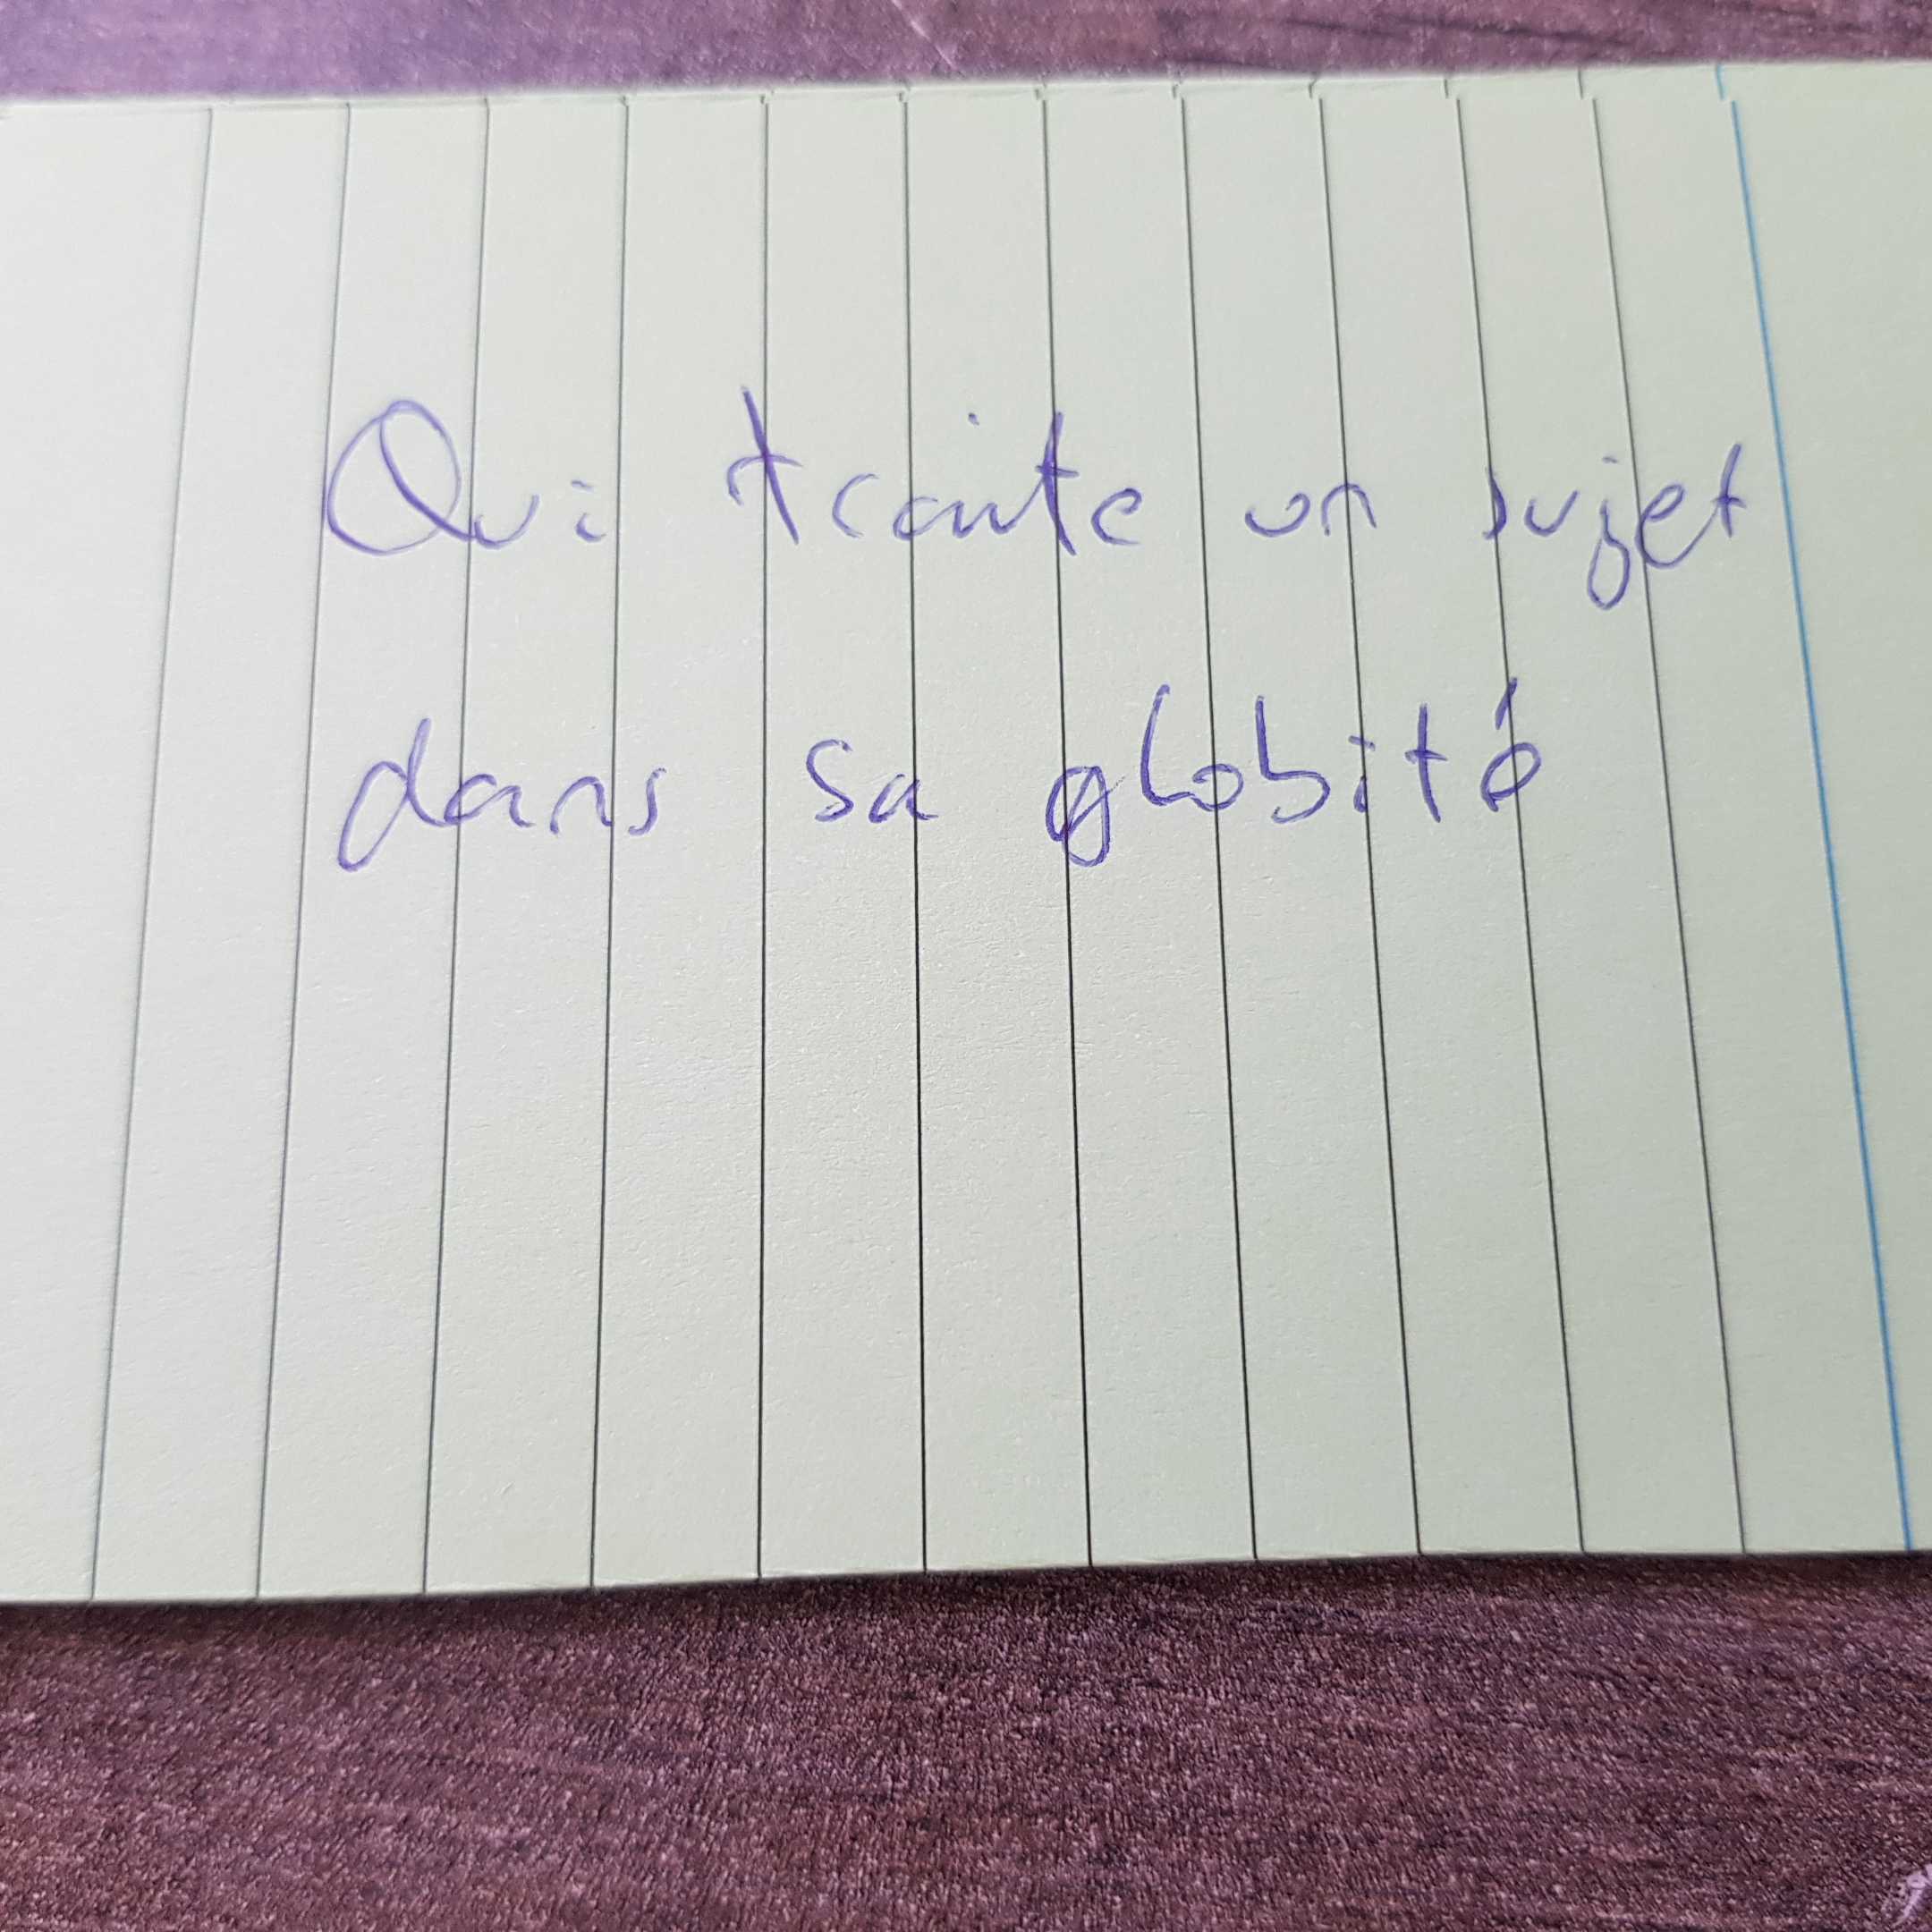 Qui traite un sujet
dans sa globité